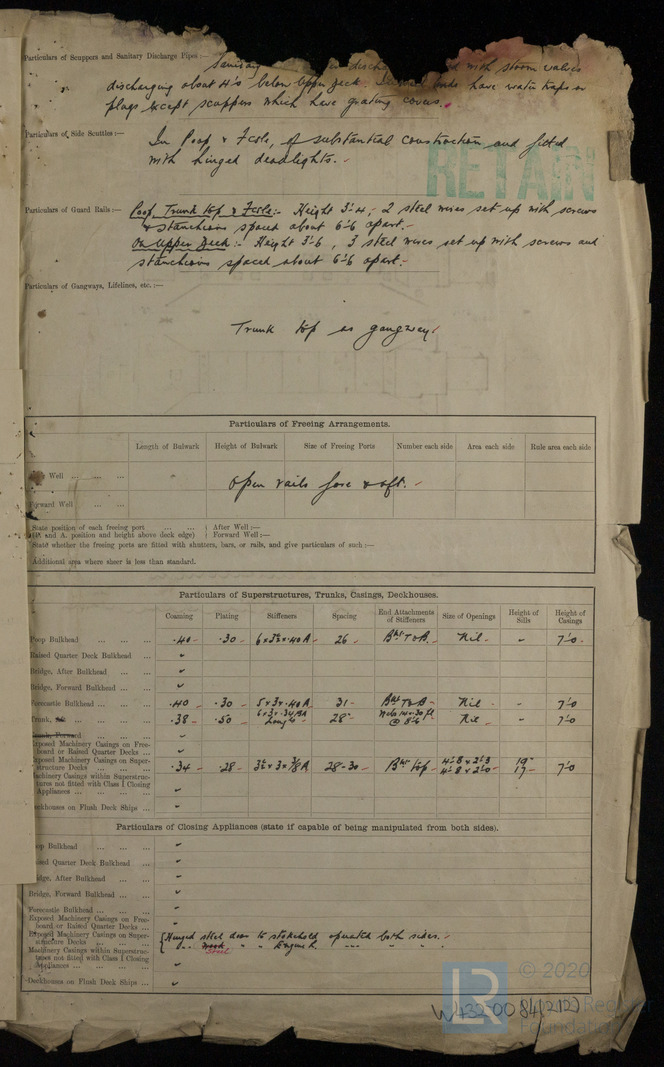 Particulars of Scuppers and Sanitary Discharge Pipes:—
with storm valves
discharging about 4'0 below Upper Deck. have water traps or
plugs except scuppers which have grating covers.
Particulars of Side Scuttles:—
In Poop & Fcsle, of substantial construction and fitted
with hinged deadlights.
RETAIN
Particulars of Guard Rails:—
Poop, Trunk top & Fcsle:- Height 3'-4, 2 steel wires set up with screws
& stanchions spaced about 6'6 apart.-
On Upper Deck:- Height 3'-6, 3 steel wires set up with screws and
stanchions spaced about 6'6 apart.-
Particulars of Gangways, Lifelines, etc.:—
Trunk top as gangway.
Particulars of Freeing Arrangements.
Length of Bulwark Height of Bulwark Size of Freeing Ports Number each side Area each side Rule area each side
Well ... ... ...
Open rails fore & aft.-
Forward Well ... ...
State position of each freeing port ... ... ... } After Well:—
and A. position and height above deck edge) } Forward Well:—
State whether the freeing ports are fitted with shutters, bars, or rails, and give particulars of such:—
Additional area where sheer is less than standard.
Particulars of Superstructures, Trunks, Casings, Deckhouses.
Coaming Plating Stiffeners Spacing End Attachments of Stiffeners Size of Openings Height of Sills Height of Casings
Poop Bulkhead ... ... ... .40 .30 6x3½x.40A 26 Bkt T&B. Nil - 7'0
Raised Quarter Deck Bulkhead ...
Bridge, After Bulkhead ... ...
Bridge, Forward Bulkhead ...
Forecastle Bulkhead ... ... .40 .30 5x3x.40A 31 Bkt T&B Nil - 7'0
Trunk, .38 .50 28" Nil - 7'0
Trunk, Forward ...
Exposed Machinery Casings on Free-
board or Raised Quarter Decks ...
Exposed Machinery Casings on Super-
structure Decks ... ... .34 .28 3½x3x⅜A 28-30 Bkt top 4'-8 x 2'-3 19" 7'0
4'-8 x 2'-0 17"
Machinery Casings within Superstruc-
tures not fitted with Class I Closing
Appliances ... ... ...
Deckhouses on Flush Deck Ships ...
Particulars of Closing Appliances (state if capable of being manipulated from both sides).
Poop Bulkhead ... ... ...
Raised Quarter Deck Bulkhead ...
Bridge, After Bulkhead ... ...
Bridge, Forward Bulkhead ...
Forecastle Bulkhead ... ...
Exposed Machinery Casings on Free-
board or Raised Quarter Decks ...
Exposed Machinery Casings on Super-
structure Decks ... ... Hinged steel door to stokehold operated both sides.
Steel
Machinery Casings within Superstruc-
tures not fitted with Class I Closing
Appliances ... ... ...
Deckhouses on Flush Deck Ships ...
LR © 2020
Lloyd's Register
Foundation
W432-0084(2/2)